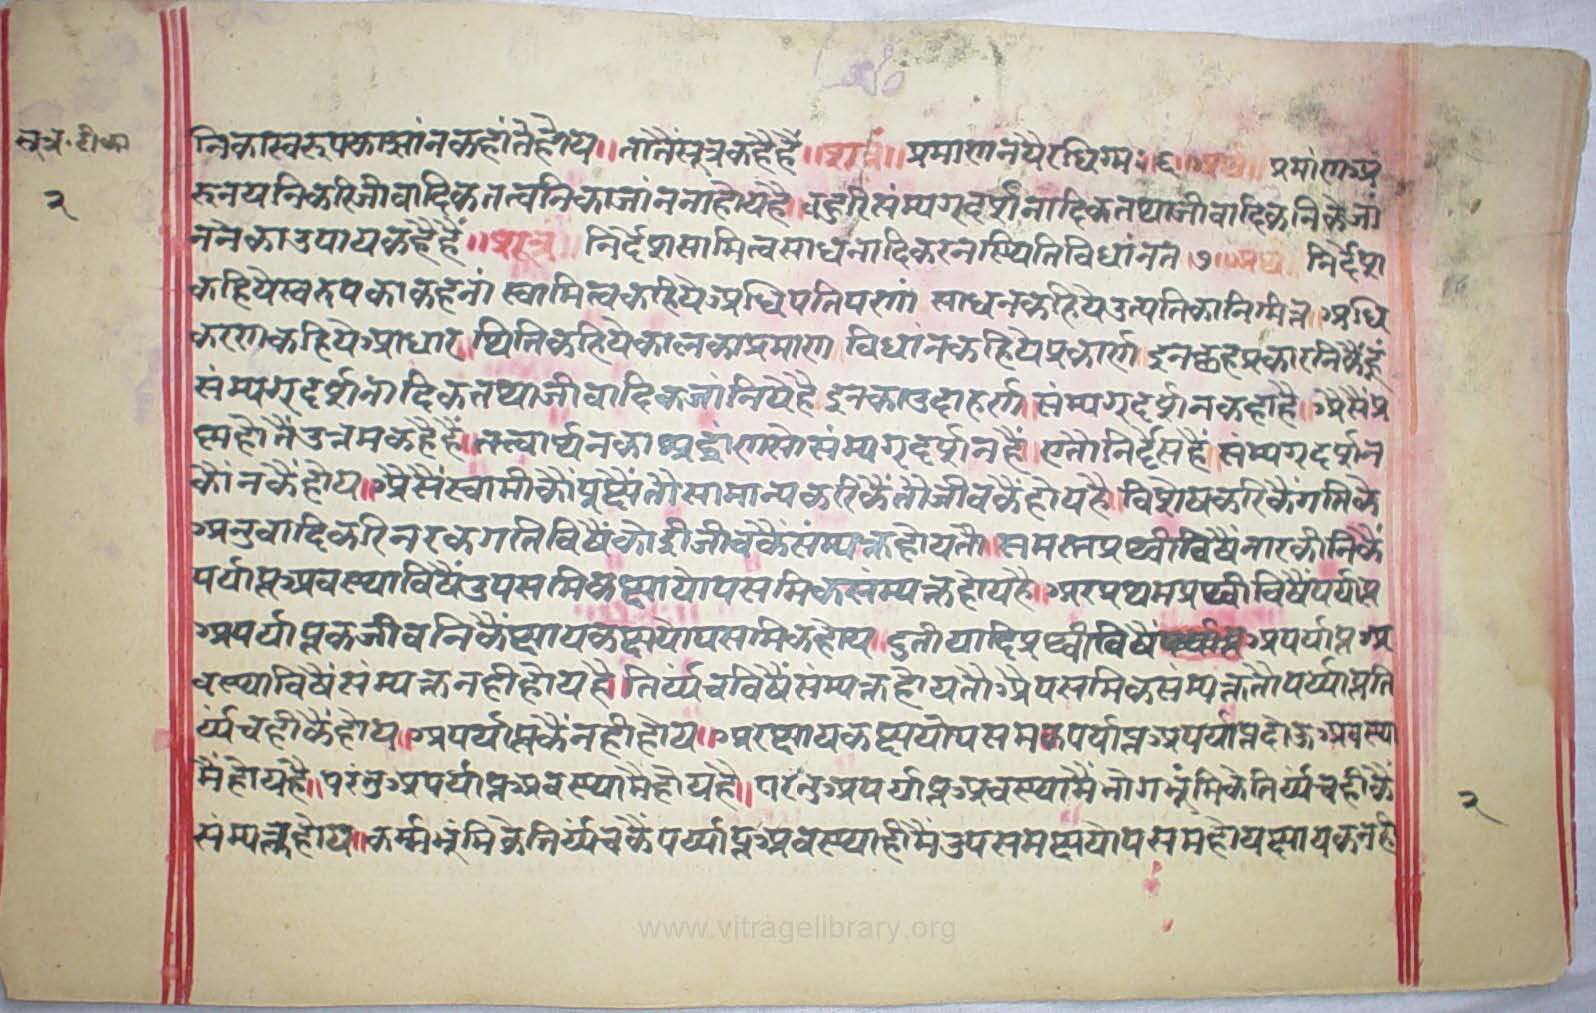 सूत्र. टीका
२
निकास्वरूपकाज्ञांनकहांतैहोय ॥ तातैंसूत्रकहैहैं ॥ शूत्रं ॥ प्रमाणनयैरधिगमः ६ ॥ अर्थ ॥ प्रमांणअ
रुनयनिकरिजीवादिकतत्वनिकाजांननाहोयहै । वहुरिसंम्यगदर्शनादिकतथाजीवादिकनिकैजां
ननैकाउपायकहैहैं ॥ शूत्र ॥ निर्देशसामित्वसाधनादिकरनस्थितिविधांनत ७ ॥ अर्थ निर्देश
कहियेस्वरुपकाकहनां स्वामित्वकहियैअधिपतिपणां साधनकहियेउत्पतिकानिमित्त अधि
करणकहियेआधार थितिकहियेकालकाप्रमाण विधांनकहियेप्रकार्ण इनछहप्रकारनिकैंहूं
संम्यग्दर्शनादिकतथाजीवादिकजांनियेहै इनकाउदाहर्ण संम्यग्दर्शनकहाहै । अैसैंप्र
ष्महोतैंउत्तमकहैहैं । तत्वार्थनकाश्रद्धांणसोसंम्यग्दर्शनहैं । एतौनिर्देसहै संम्यगदर्शन
कौंनकैंहोय । अैसैंस्वामीकौंपुछैंतौसामान्यकरिकैंतौजीवकैंहोयहै । विशेषकरिकैंगतिके
अनुवादिकरिनरकगतिविषैंकोइीजीवकैंसंम्यक्तहोयतौ । समस्तप्रथ्वीविषैंनारकीनिकैं
पर्याप्तअवस्थाविषैंउपसमिकक्षायोपसमिकसंम्यक्तहोयहै । अरप्रथमप्रथ्वीविषैंपर्याप्त
अपर्याप्तकजीवनिकैंक्षायकक्षयोपसमिकहोय । दुतीयादिप्रथ्वीविषैं अपर्याप्तअ
वस्थाविषैंसंम्यक्तनहीहोयहै । तिर्य्यंचविषैंसंम्यक्तहोयतौ । अैपसमिकसंम्यक्ततौपर्य्याप्तति
र्य्यंचहीकैंहोय । अपर्याप्तकैंनहीहोय ॥ अरक्षायकक्षयोपसमकपर्याप्तअपर्याप्तदोऊअवस्था
मैंहोयहै ॥ परंतुअपर्याप्तअवस्थामैहोयहै ॥ परंतुअपर्याप्तअवस्थामैंभोगभूंमिकेतिर्य्यंचहीकैं
संम्यक्तहोय । कर्म्मभूंमिकेतिर्य्यंचकैंपर्य्याप्तअवस्थाहीमैंउपसमक्षयोपसमहोयक्षायकनही
२
www.vitragelibrary.org